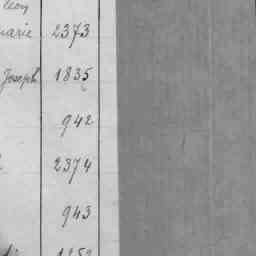 Léon
marie 2373
Joseph 1835
942
2374
943